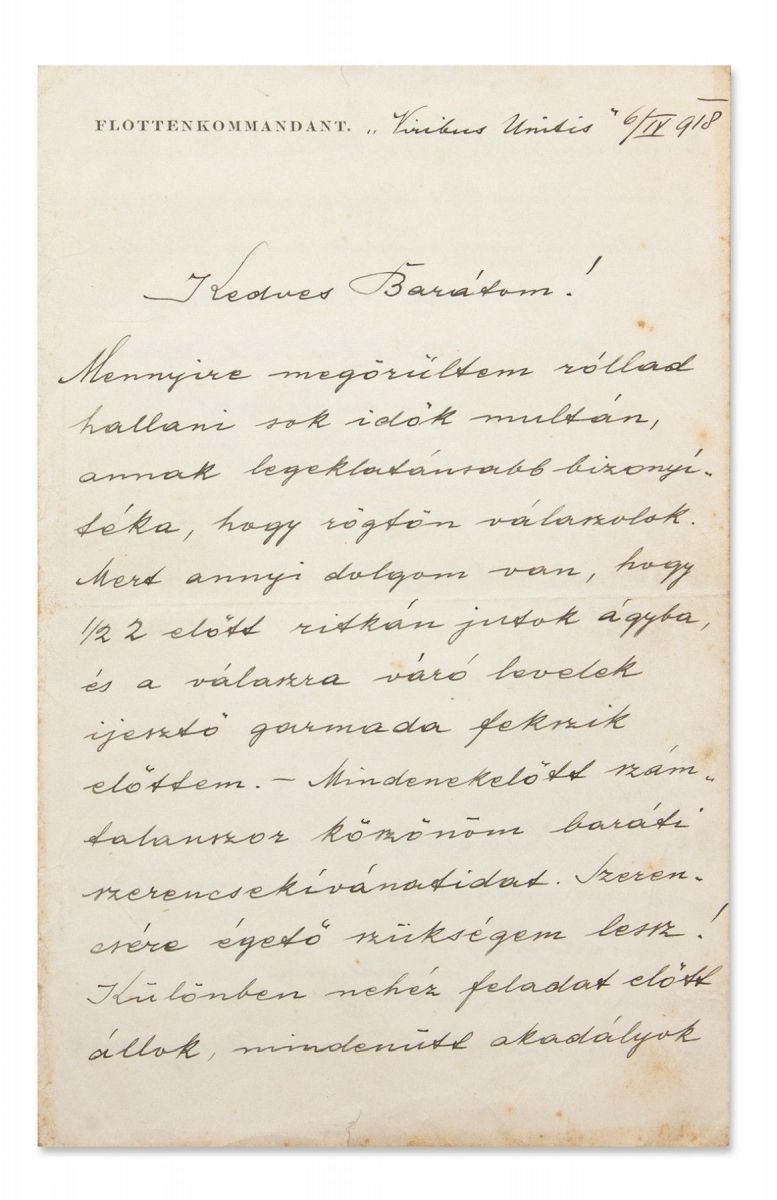 FLOTTENKOMMANDANT. „Viribus Unitis" 6/IV 918
Kedves Barátom!
Mennyire megörültem róllad
hallani sok idők multán,
annak legeklatánsabb bizonyí-
téka, hogy rögtön válaszolok.
Mert annyi dolgom van, hogy
1/2 2 előtt ritkán jutok ágyba,
és a válaszra váró levelek
ijesztő garmada fekszik
előttem. – Mindenekelőtt szám-
talanszor köszönöm baráti
szerencsekívánatidat. Szeren-
csére égető szükségem lessz!
Különben nehéz feladat előtt
állok, mindenütt akadályok